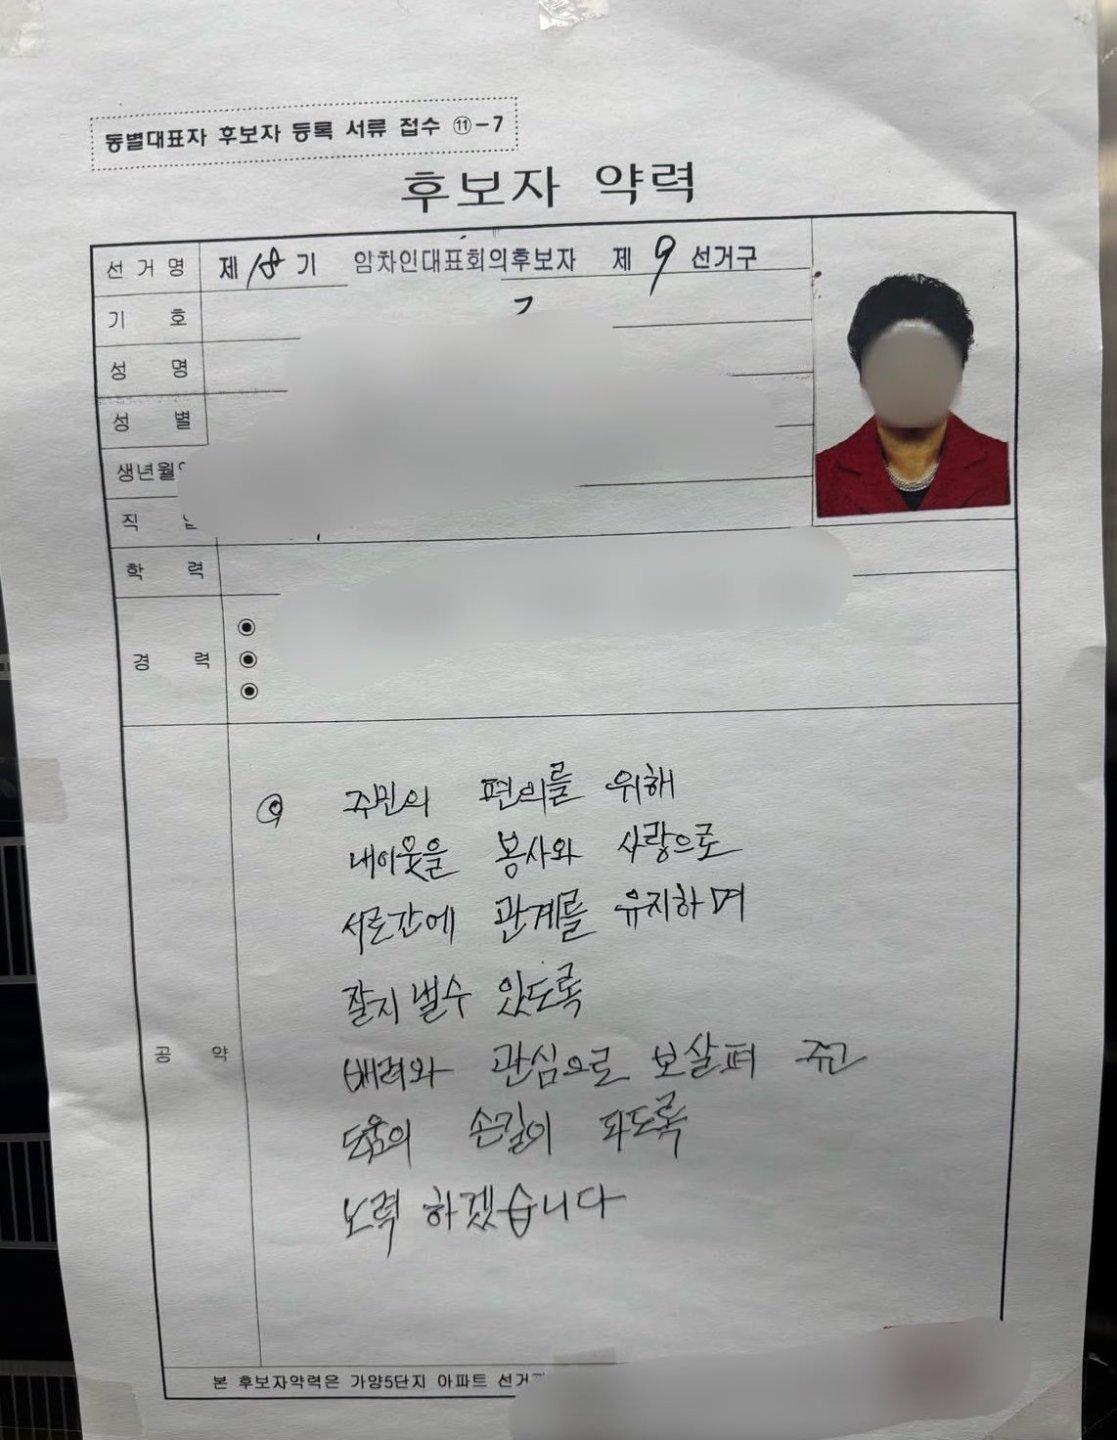 동별대표자 후보자 등록 서류 접수 ⑪-7
후보자 약력
선거명 제 18 기 임차인대표회의후보자 제 9 선거구
기 호
성 명
성 별
생년월
직
학 력
경 력
공 약
주민의 편의를 위해
내이웃을 봉사와 사랑으로
서로간에 관계를 유지하며
잘지낼수 있도록
배려와 관심으로 보살펴 주고
도움의 손길이 되도록
노력 하겠습니다
본 후보자약력은 가양5단지 아파트 선거